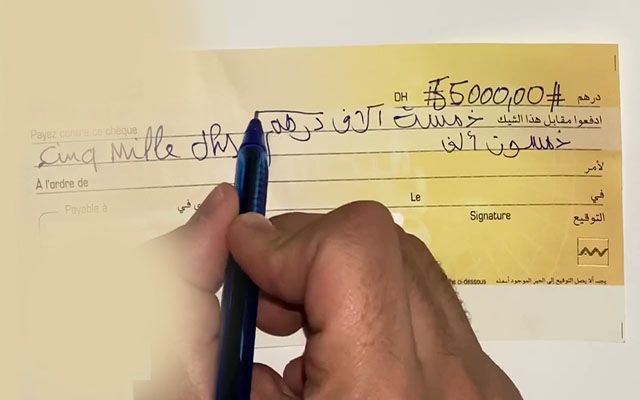 DH #55000,00# درهم
ادفعوا مقابل هذا الشيك خمست آلاف درهم
Payez contre ce chèque
خمسون ألف
Cinq Mille dhs
À l'ordre de لأمر
Payable à في Le في
Signature التوقيع
ci-dessous يجب ألا يصل التوقيع إلى الحيز الموجود أسفله